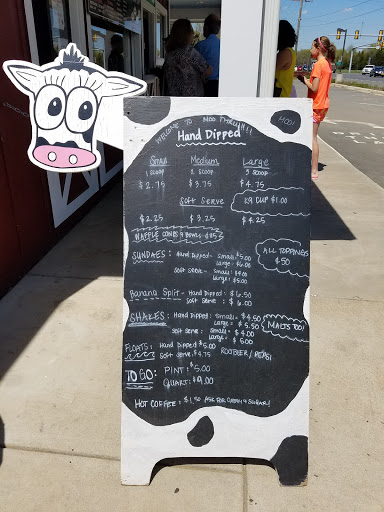 WELCOME TO MOO THRU!!!!
MOO!
Hand Dipped
Small Medium Large
1 SCOOP 2 SCOOP 3 SCOOP
$2.75 $3.75 $4.75
Soft Serve
K9 CUP $1.00
$2.25 $3.25 $4.25
WAFFLE CONES & BOWLS
ALL TOPPINGS
$.50
SUNDAES: Hand Dipped- Small: $5.00
Large: $6.00
Soft Serve- Small: $4.00
Large: $5.00
Banana Split- Hand Dipped: $6.50
Soft Serve: $6.00
SHAKES: Hand Dipped: Small= $4.50
Large= $5.50
MALTS TOO!
Soft Serve: Small= $4.00
Large= $5.00
FLOATS: Hand Dipped $5.00
Soft Serve $4.75
ROOTBEER/PEPSI
TO GO: PINT: $5.00
QUART: $9.00
HOT COFFEE: $1.50 ASK FOR CREAM & SUGAR!